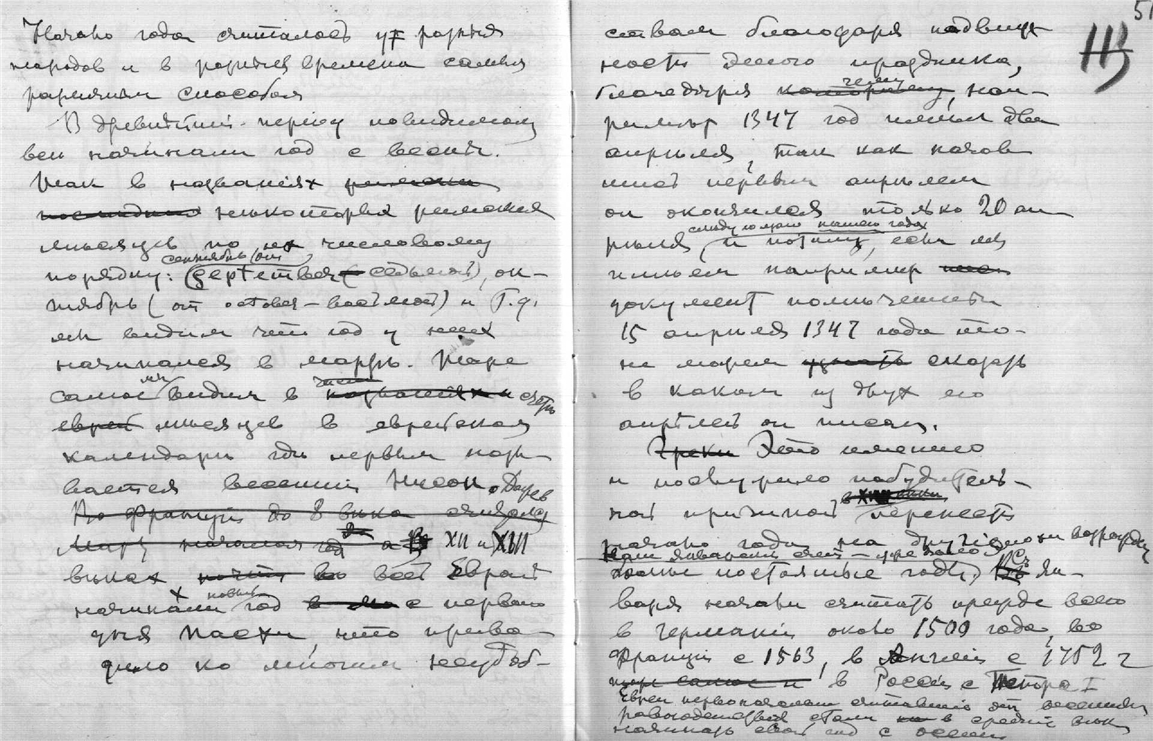 Начало года считалось у разныя
народов и в разныя времена самыя
разными способом
В древнѣйшій періоду повидимому
все начинали год с весны.
Так в названіях
нѣкоторыя римскія
мѣсяцев по их числовому
сентябрь (от
порядку: september – седьмой), ок-
тябрь (от october – восьмой) и т.д.
мы видим что год у них
начинался в мартѣ. Тоже
самое мы видим в числѣ и счетѣ
еврей мѣсяцев в еврейском
календарѣ гдѣ первым назы-
вается весенній Нисон. Даже
Во Франціи до 8 вѣка
Март начался год а в XII и XIII
вѣках почти во всей Европѣ
начинали новый год с первого
дня Пасхи что приво-
дило ко многим неудоб-
51
ствам благодаря подвиж-
ности этого праздника,
благодаря чему, нап-
римѣр 1347 год имѣл два
апрѣля, так как начав-
шись первым апрѣлем
он окончился только 20 ап-
слѣдующаго нашего года
рѣля, и потому, если мы
имѣем например
документ помѣченный
15 апрѣля 1347 года то-
не можем узнать сказать
в каком из двух его
апрѣлей он писан.
Греки Это именно
и послужило побудитель-
ной причиной перенести
начало года на другіе
Наш январскій счет – уже
болѣе постоянные годы, Съ ян-
варя начали считать прежде всего
в Германіи около 1500 года, во
Франціи с 1563, в Англіи с 1752 г
и в Россіи с Петра I
Евреи первоначально считавшіе от весенняго
равноденствія стали в средніе вѣка
начинать свой год с осени